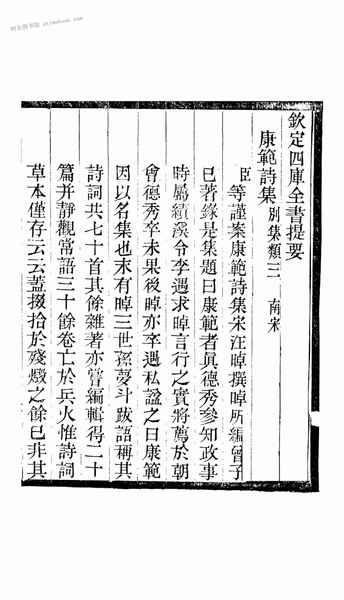 欽定四庫全書提要
康範詩集 別集類三 南宋
臣等謹案康範詩集宋汪晫撰晫所編曾子
已著錄是集題曰康範者真德秀參知政事
時屬績溪令李遇求晫言行之實將薦於朝
會德秀卒未果後晫亦卒遇私謚之曰康範
因以名集也末有晫三世孫夢斗跋語稱其
詩詞共七十首其餘雜著亦嘗編輯得二十
篇并靜觀常語三十餘卷亡於兵火惟詩詞
草本僅存云云蓋掇拾於殘燬之餘已非其